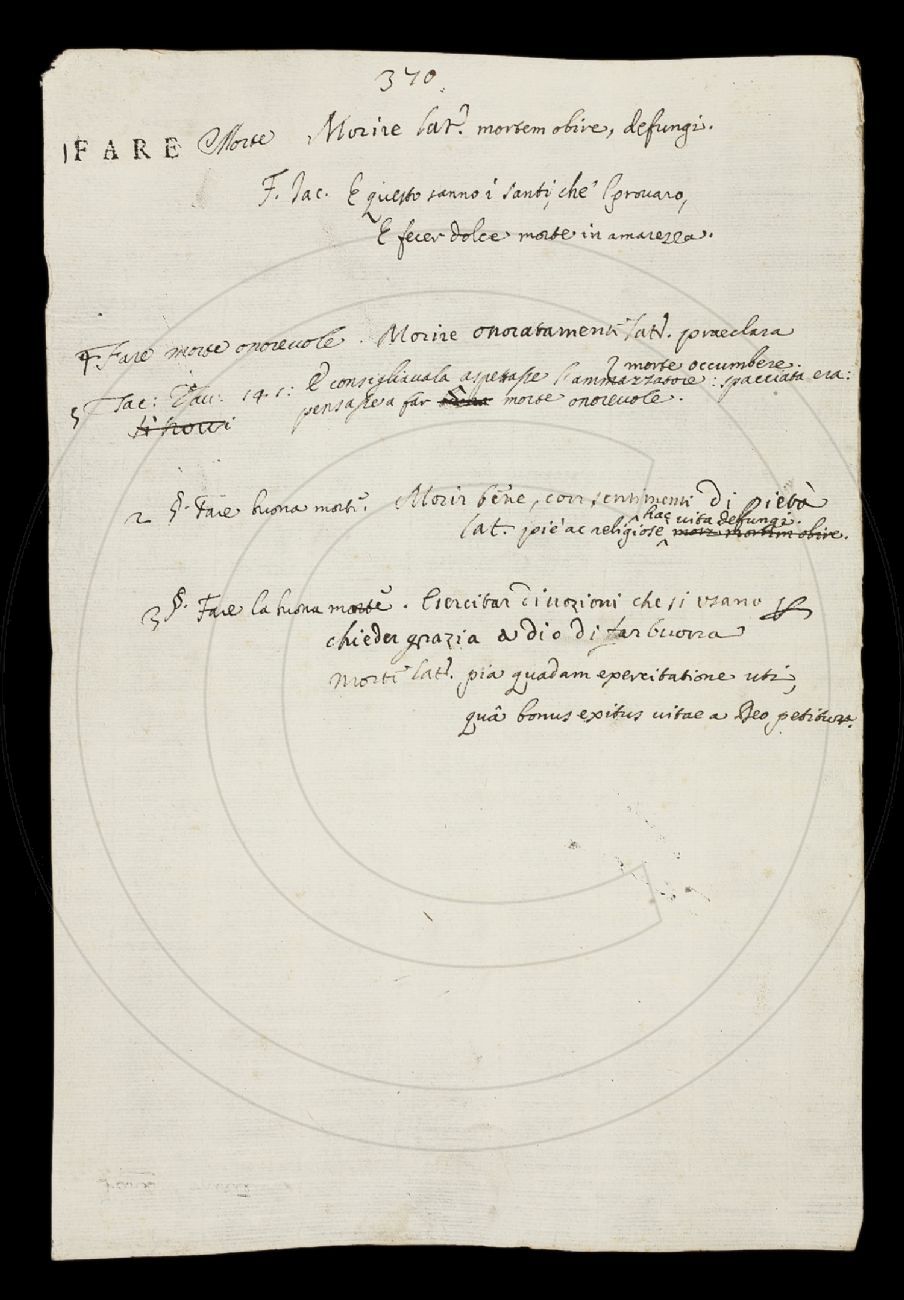 370.
FARE Morte Morire lat. mortem obire, defungi.
F. Jac. E questo sanno i santi, che 'l provaro,
E fecer dolce morte in amarezza.
Fare morte onorevole. Morire onoratamente lat. praeclara
morte occumbere.
Tac: Dav: 141: E consigliavala aspettasse l'ammazzatore: spacciata era:
pensasse a far morte onorevole.
2 §. Fare buona morte. Morir bene, con sentimenti di pietà
hac vita defungi.
lat. piè ac religiose mortem obire.
3 §. Fare la buona morte. Esercitar divozioni che si usano
chieder grazia a dio di far buona
morte lat. pia quadam exercitatione uti,
quâ bonus exitus vitae a Deo petitur.